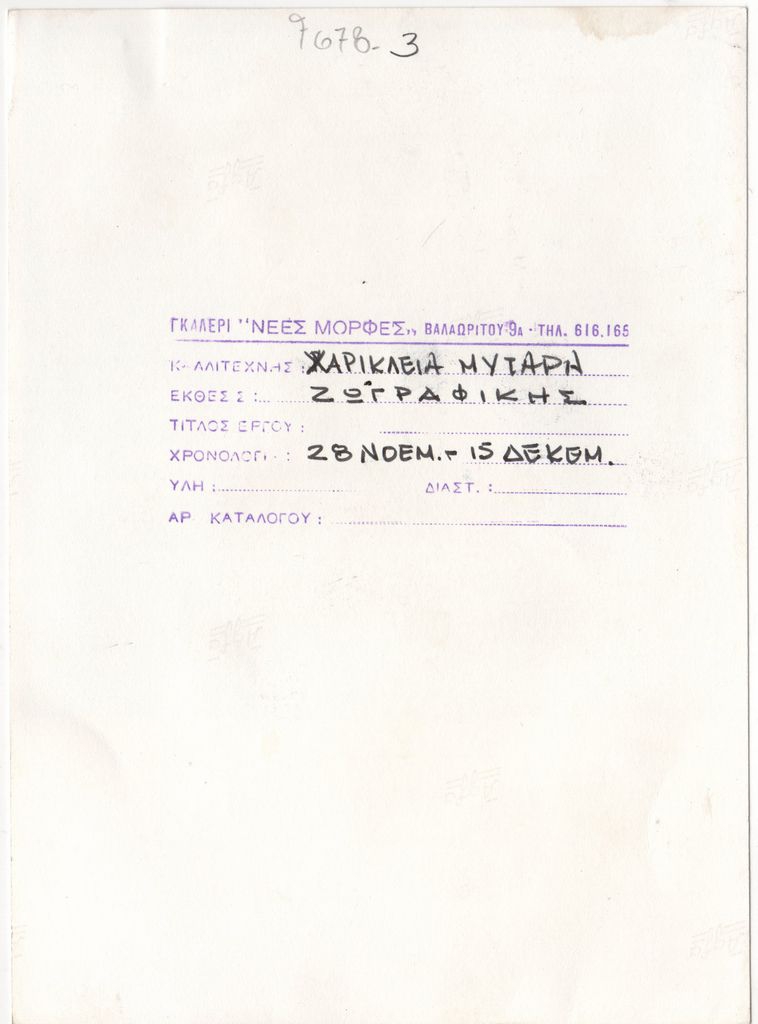 7678-3
ΓΚΑΛΕΡΙ "ΝΕΕΣ ΜΟΡΦΕΣ,, ΒΑΛΑΩΡΙΤΟΥ 9Α - ΤΗΛ. 616.165
ΚΑΛΛΙΤΕΧΝΗΣ: ΧΑΡΙΚΛΕΙΑ ΜΥΤΑΡΗ
ΕΚΘΕΣΣ: ΖΩΓΡΑΦΙΚΗΣ
ΤΙΤΛΟΣ ΕΡΓΟΥ:
ΧΡΟΝΟΛΟΓΙ : 28 ΝΟΕΜ.- 15 ΔΕΚΕΜ.
ΥΛΗ : ΔΙΑΣΤ. :
ΑΡ ΚΑΤΑΛΟΓΟΥ :